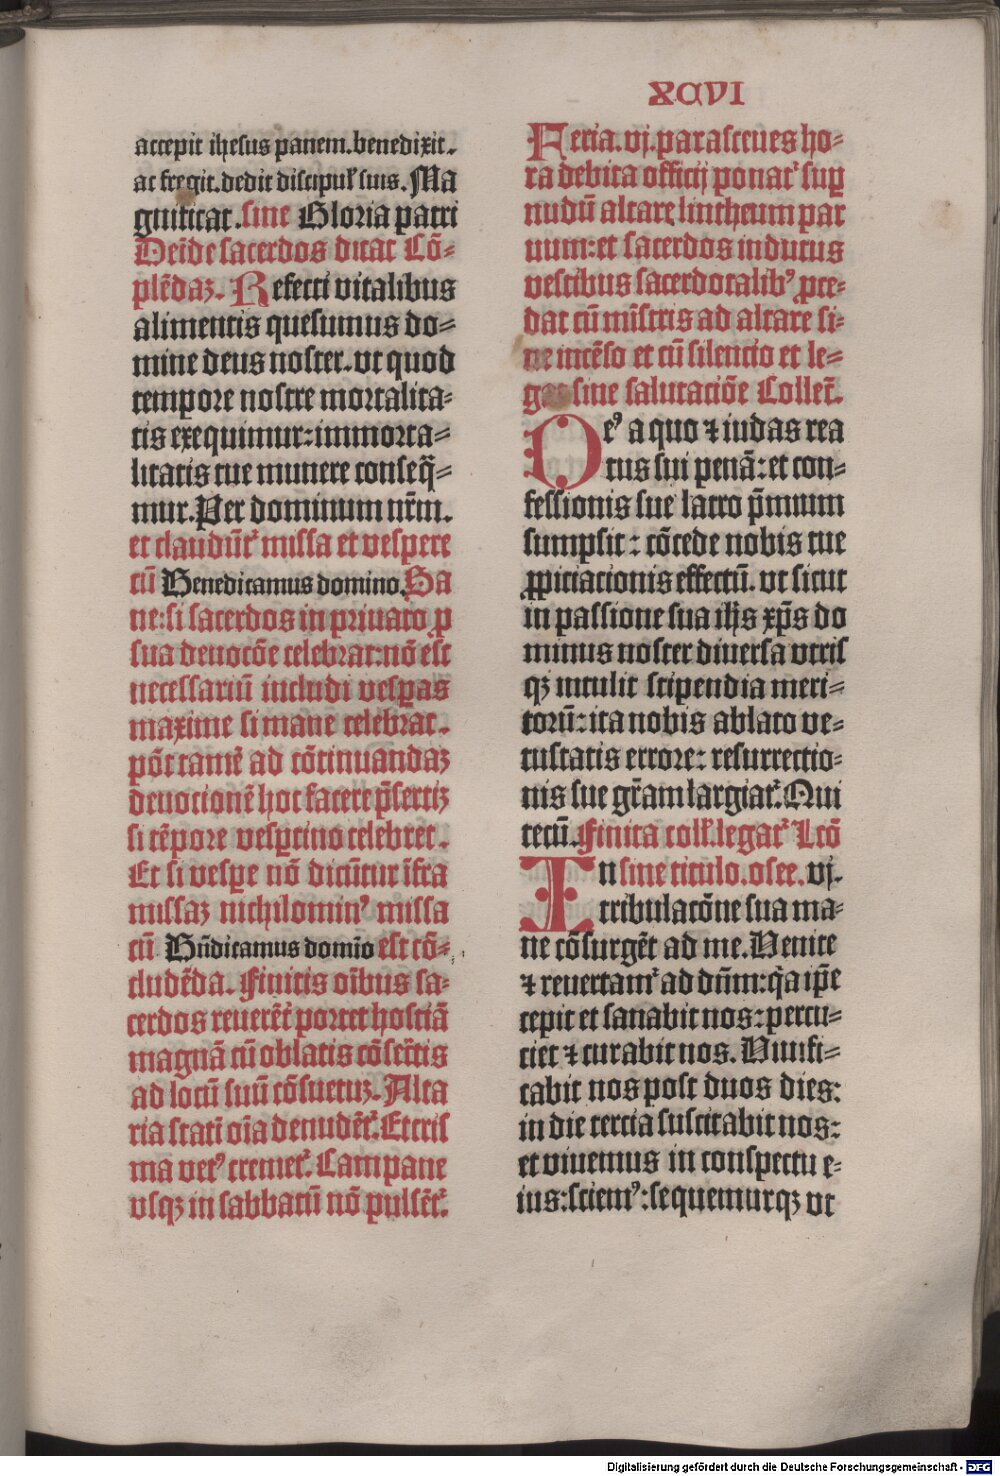 XCVI
accepit ihesus panem. benedixit.
ac fregit. dedit discipul' suis. Ma
gnificat. sine Gloria patri
Deīde sacerdos dicat Cō-
plēdaꝫ. Refecti vitalibus
alimentis quesumus do-
mine deus noster. vt quod
tempore nostre mortalita-
tis exequimur: immorta-
litatis tue munere conseq̄-
mur. Per dominum nr̄m.
et claudūt᷑ missa et vespere
cū Benedicamus domino. Sa
ne: si sacerdos in priuato ꝓ
sua deuocōe celebrat: nō est
necessariū includi vesꝑas
maxime si mane celebrat.
pōt tamē ad cōtinuandaꝫ
deuotionē hoc facere p̄sertiꝫ
si tēpore vesꝑtino celebret.
Et si vesꝑe nō dicūtur īfra
missaꝫ nichilomin⁹ missa
cū Bn̄dicamus domīo est cō-
cludēda. Finitis oībus sa-
cerdos reuerēt᷑ portet hostiā
magnā cū oblatis cōsec̄tis
ad locū suū cōsuetuꝫ. Alta
ria statī oīa denudēt᷑. Et cris
ma vet⁹ cremet᷑. Campane
vsqꝫ in sabbatū nō pulsēt᷑.
Feria. vj. parasceues ho-
ra debita officij ponat᷑ suꝑ
nudū altare lintheum par
uum: et sacerdos indutus
vestibus sacerdotalib⁹ ꝓce-
dat cū mīstris ad altare si-
ne incēso et cū silencio et le-
gat sine salutaciōe Collec̄t.
De⁹ a quo ⁊ iudas rea
tus sui penā: et con-
fessionis sue latro p̄mium
sumpsit: cōcede nobis tue
ꝓpiciacionis effectū. vt sicut
in passione sua ihs̄ xp̄s do
minus noster diuersa vtris
qꝫ intulit stipendia meri-
torū: ita nobis ablato ve-
tustatis errore: resurrectio-
nis sue gr̄am largiat᷑. Qui
tecū. Finita coll'. legat᷑ Lcō
In sine titulo. osee. vj.
tribulacōne sua ma-
ne cōsurgēt ad me. Venite
⁊ reuertam᷑ ad dn̄m: q̄a ip̄e
cepit et sanabit nos: percu-
ciet ⁊ curabit nos. Viuifi-
cabit nos post duos dies:
in die tercia suscitabit nos:
et viuemus in conspectu e-
ius: sciem⁹: sequemurqꝫ vt
Digitalisierung gefördert durch die Deutsche Forschungsgemeinschaft - DFG